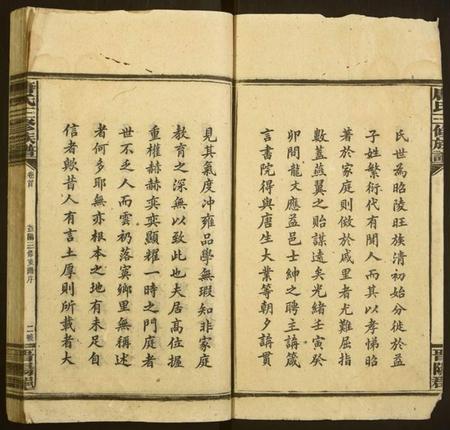 氏世為昭陵旺族清初始分徙於益
子姓繁衍代有聞人而其以孝悌昭
著於家庭則傚於戚里者尤難屈指
數蓋燕翼之貽謀遠矣光緒壬寅癸
卯間龍文應益邑士紳之聘主講箴
言書院得與唐生大業等朝夕講貫
見其氣度冲雍品學無瑕知非家庭
教育之深無以致此也夫居高位握
重權赫赫奕奕顯耀一時之門庭者
世不乏人而雲礽落寞鄉里無稱述
者何多耶無亦根本之地有未足自
信者歟昔人有言土厚則所載者大
唐氏三修族譜
卷首
益陽三修支譜序
二
晉陽郡